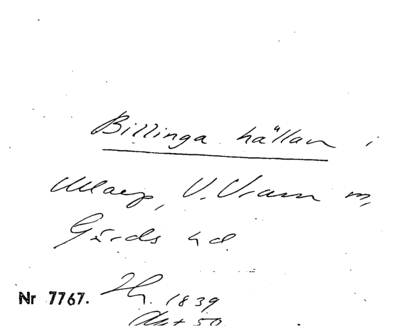 Billinga hällan i
Maep, V. Vram m,
Gärds hd.
Nr 7767. Zh. 1839
Akt 50